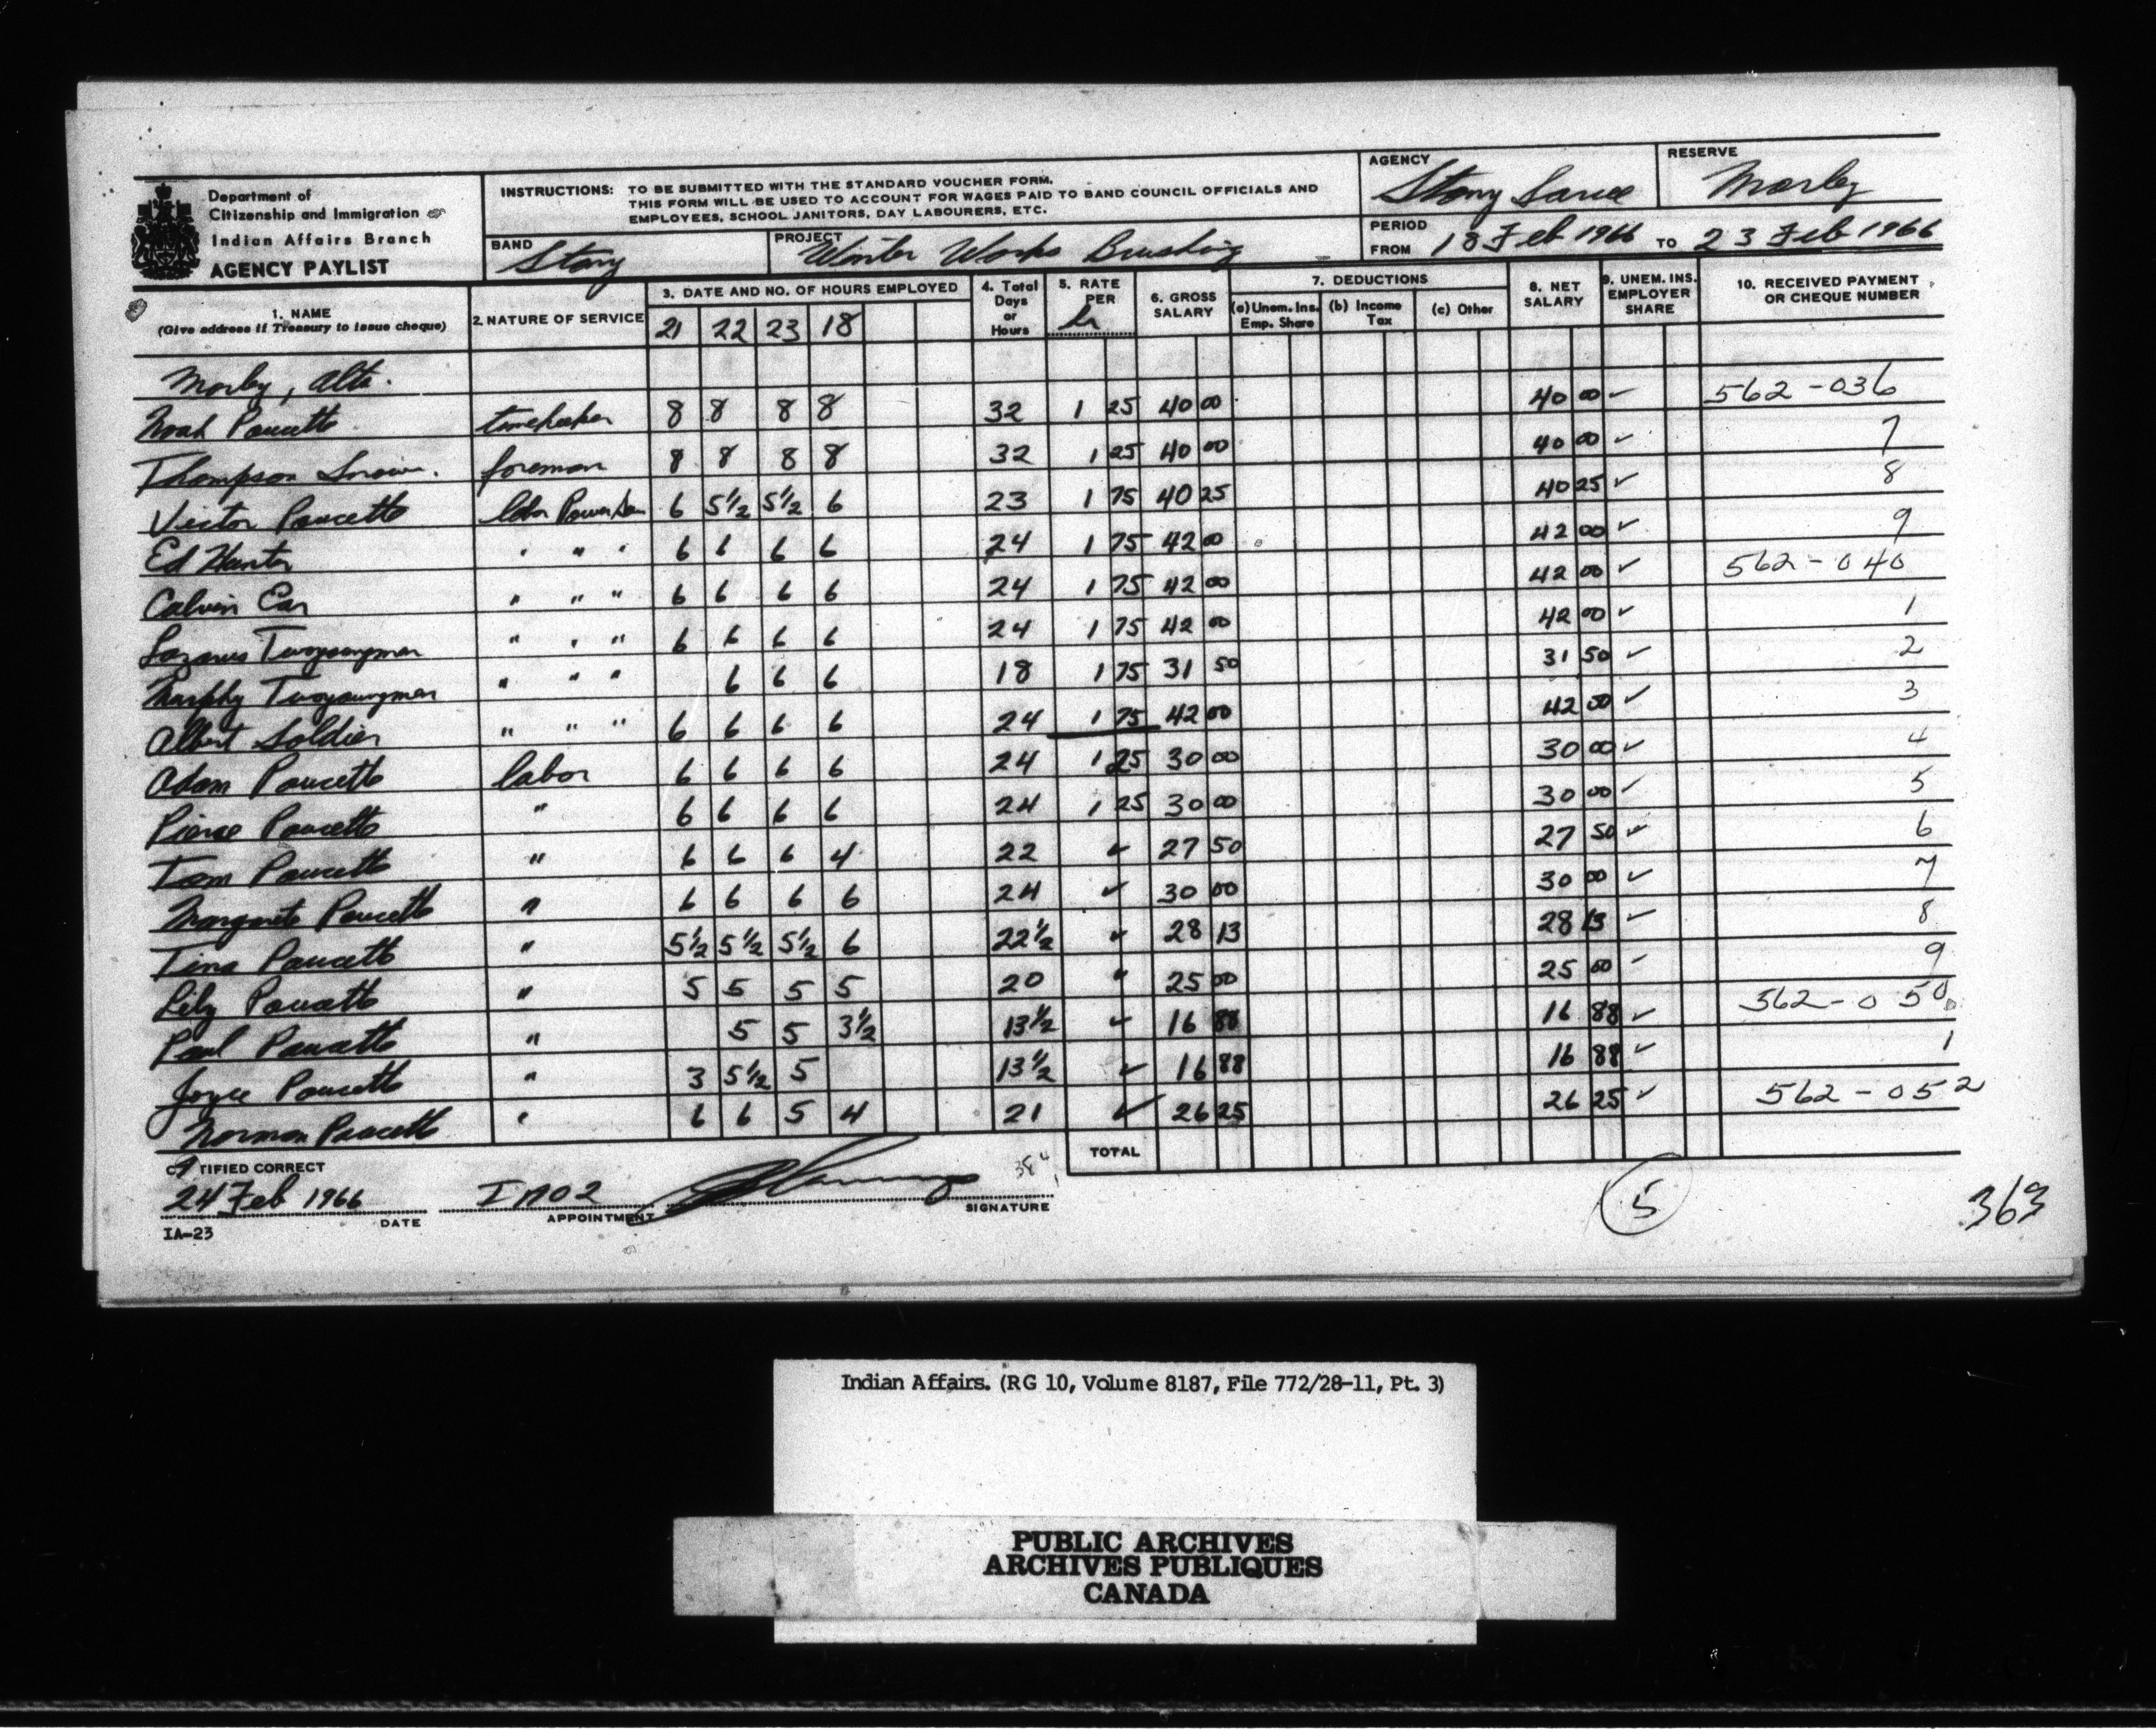 Department of
Citizenship and Immigration
Indian Affairs Branch
AGENCY PAYLIST
INSTRUCTIONS: TO BE SUBMITTED WITH THE STANDARD VOUCHER FORM.
THIS FORM WILL BE USED TO ACCOUNT FOR WAGES PAID TO BAND COUNCIL OFFICIALS AND
EMPLOYEES, SCHOOL JANITORS, DAY LABOURERS, ETC.
AGENCY Stony Sarcee
RESERVE Morley
BAND Stony
PROJECT Winter Works Brushing
PERIOD FROM 18 Feb 1966 TO 23 Feb 1966
1. NAME (Give address if Treasury to issue cheque)
2. NATURE OF SERVICE
3. DATE AND NO. OF HOURS EMPLOYED
21 22 23 18
4. Total Days or Hours
5. RATE PER hr
6. GROSS SALARY
7. DEDUCTIONS
(a) Unem. Ins. Emp. Share
(b) Income Tax
(c) Other
8. NET SALARY
9. UNEM. INS. EMPLOYER SHARE
10. RECEIVED PAYMENT OR CHEQUE NUMBER
Morley, Alta.
Noah Poucette timekeeper 8 8 8 8 32 1 25 40 00 40 00 ✓ 562-036
Thompson foreman 8 8 8 8 32 1 25 40 00 40 00 ✓ 7
Victor Poucette labor Power 6 5½ 5½ 6 23 1 75 40 25 40 25 ✓ 8
Ed Hunter " " " 6 6 6 6 24 1 75 42 00 42 00 ✓ 9
Calvin Ear " " " 6 6 6 6 24 1 75 42 00 42 00 ✓ 562-040
Lazarus Twoyoungmen " " " 6 6 6 6 24 1 75 42 00 42 00 ✓ 1
Murphy Twoyoungmen " " " 6 6 6 18 1 75 31 50 31 50 ✓ 2
Albert Soldier " " " 6 6 6 6 24 1 75 42 00 42 00 ✓ 3
Adam Poucette labor 6 6 6 6 24 1 25 30 00 30 00 ✓ 4
Pierce Poucette " 6 6 6 6 24 1 25 30 00 30 00 ✓ 5
Tom Poucette " 6 6 6 4 22 " 27 50 27 50 ✓ 6
Margarete Poucette " 6 6 6 6 24 " 30 00 30 00 ✓ 7
Tina Poucette " 5½ 5½ 5½ 6 22½ " 28 13 28 13 ✓ 8
Lily Poucette " 5 5 5 5 20 " 25 00 25 00 ✓ 9
Paul Poucette " 5 5 3½ 13½ " 16 88 16 88 ✓ 562-050
Joyce Poucette " 3 5½ 5 13½ " 16 88 16 88 ✓ 1
Norman Poucette " 6 6 5 4 21 " 26 25 26 25 ✓ 562-052
TOTAL
CERTIFIED CORRECT
24 Feb 1966 DATE
APPOINTMENT
SIGNATURE
IA-23
5
363
Indian Affairs. (RG 10, Volume 8187, File 772/28-11, Pt. 3)
PUBLIC ARCHIVES
ARCHIVES PUBLIQUES
CANADA